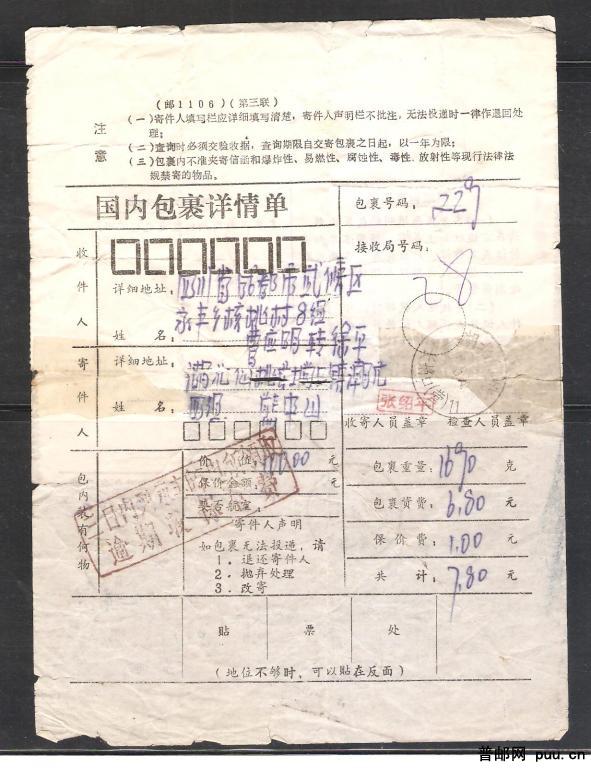 (邮1106)(第三联)
注意
(一)寄件人填写栏应详细填写清楚,寄件人声明栏不批注,无法投递时一律作退回处
理;
(二)查询时必须交验收据,查询期限自交寄包裹之日起,以一年为限;
(三)包裹内不准夹寄信函和爆炸性、易燃性、腐蚀性、毒性、放射性等现行法律法
规禁寄的物品。
国内包裹详情单
包裹号码:229
接收局号码:
28
收件人
详细地址:四川省成都市武侯区
永丰乡核桃村8组
姓名:
转徐平
寄件人
详细地址:湖北仙桃
姓名:
张绍平
收寄人员盖章
检查人员盖章
包内装有何物
价值:100.00元
保价金额:元
是否航空:
寄件人声明
如包裹无法投递,请
1.退还寄件人
2.抛弃处理
3.改寄
包裹重量:1690克
包裹资费:6.80元
保价费:1.00元
共计:7.80元
逾期
费
贴票处
(地位不够时,可以贴在反面)
普邮网 puu.cn